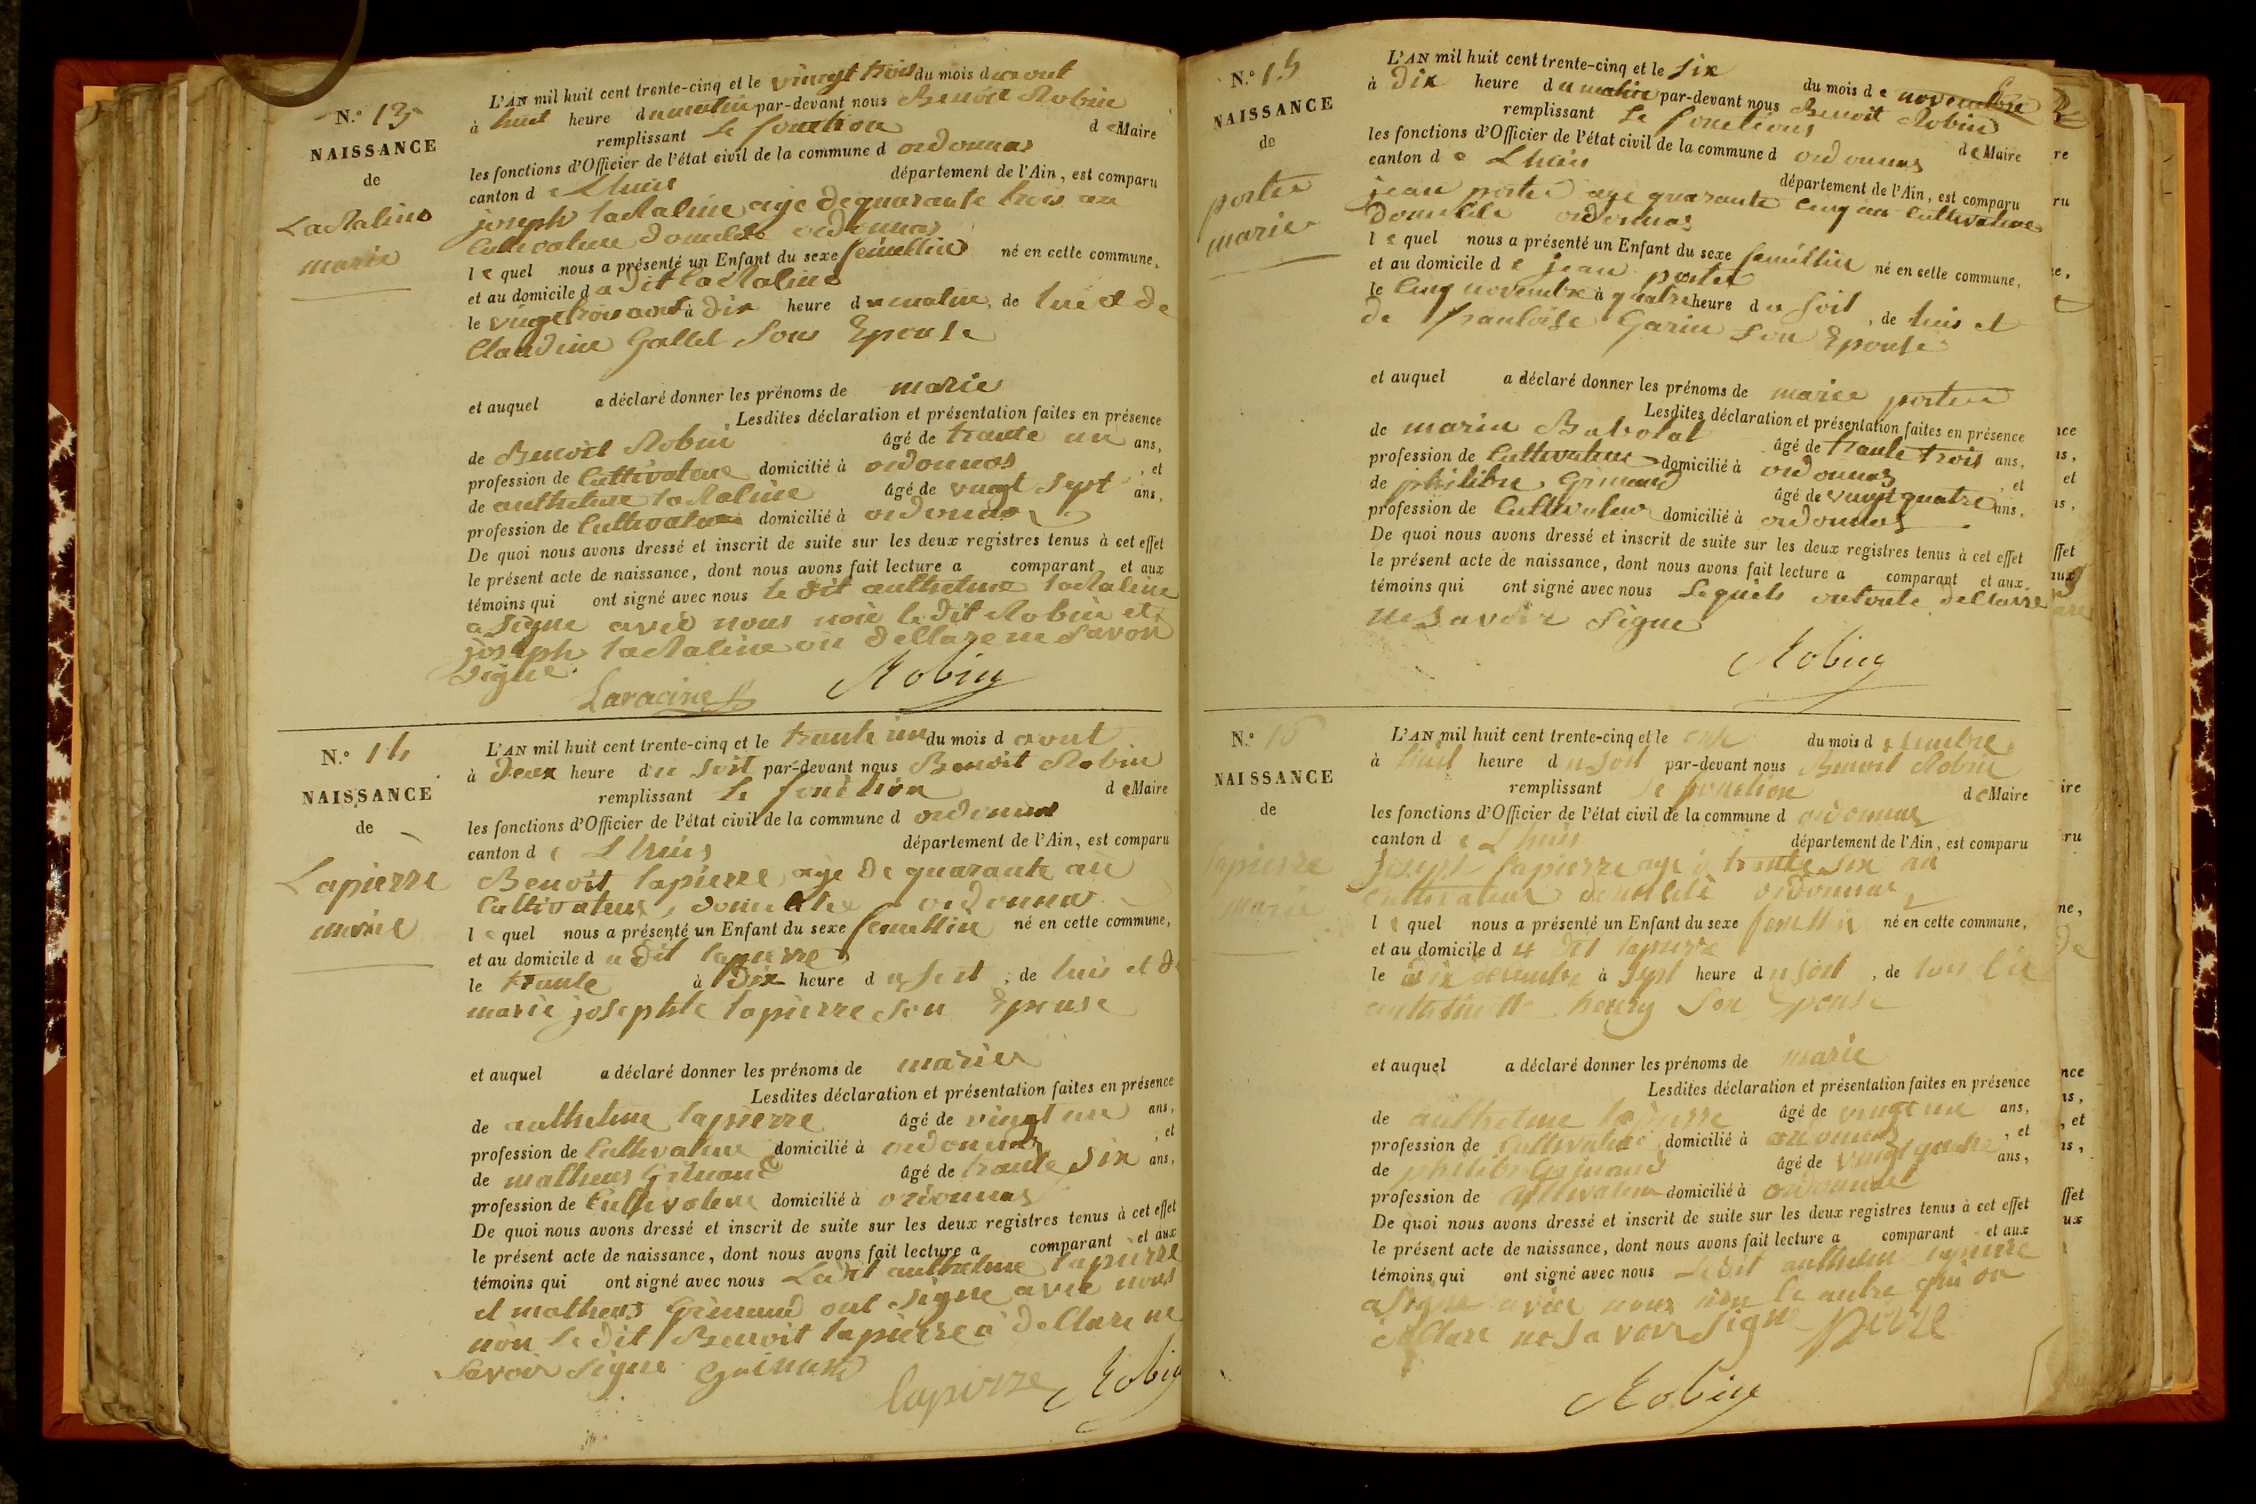 N.º 13
NAISSANCE
de
Laraline
marie
L'AN mil huit cent trente-cinq et le vingt trois du mois d aout
à huit heure du matin par-devant nous Benoit Robin
remplissant le fonction de Maire
les fonctions d'Officier de l'état civil de la commune d ordonnas
canton de Lhuis département de l'Ain, est comparu
joseph laraline age de quarante trois an
Cultivateur domicile ordonnas
lequel nous a présenté un Enfant du sexe feminin né en cette commune,
et au domicile du dit laraline
le vingt trois aout à dix heure du matin, de lui et de
Claudine Gallet son Epouse
et auquel a déclaré donner les prénoms de marie
Lesdites déclaration et présentation faites en présence
de Benoit Robin âgé de trante un ans,
profession de Cultivateur domicilié à ordonnas, et
de anthelme laraline âgé de vingt sept ans,
profession de Cultivateur domicilié à ordonnas
De quoi nous avons dressé et inscrit de suite sur les deux registres tenus à cet effet
le présent acte de naissance, dont nous avons fait lecture a comparant et aux
témoins qui ont signé avec nous le dit anthelme laraline
a signe avec nous non le dit Robin et
joseph laraline on dellare ne savoir
signe
Laracine Robin
N.º 14
NAISSANCE
de
Lapierre
marie
L'AN mil huit cent trente-cinq et le trante un du mois d aout
à deux heure du soir par-devant nous Benoit Robin
remplissant le fonction de Maire
les fonctions d'Officier de l'état civil de la commune d ordonnas
canton de Lhuis département de l'Ain, est comparu
Benoit lapierre age de quarante an
Cultivateur, domicile a ordonnas
lequel nous a présenté un Enfant du sexe feminin né en cette commune,
et au domicile du dit lapierre
le trante à dix heure du soir, de luis et de
marie josephte lapierre son Epouse
et auquel a déclaré donner les prénoms de marie
Lesdites déclaration et présentation faites en présence
de anthelme lapierre âgé de vingt un ans,
profession de Cultivateur domicilié à ordonnas, et
de matheus Grinand âgé de trante six ans,
profession de Cultivateur domicilié à ordonnas
De quoi nous avons dressé et inscrit de suite sur les deux registres tenus à cet effet
le présent acte de naissance, dont nous avons fait lecture a comparant et aux
témoins qui ont signé avec nous Ledit anthelme lapierre
et matheus Grinand ont signe avec nous
non le dit Benoit lapierre a dellare ne
savoir signe Guinand
lapierre Robin
N.º 15
NAISSANCE
de
portier
marie
L'AN mil huit cent trente-cinq et le six du mois de novembre
à dix heure du matin par-devant nous Benoit Robin
remplissant le fonctions de Maire
les fonctions d'Officier de l'état civil de la commune d ordonnas
canton de Lhuis département de l'Ain, est comparu
jean portier age quarante cinq an Cultivateur
domicile ordonnas
lequel nous a présenté un Enfant du sexe feminin né en celle commune,
et au domicile de jean portier
le cinq novembre à quatre heure du soir, de luis et
de francoise Garin son Epouse
et auquel a déclaré donner les prénoms de marie portier
Lesdites déclaration et présentation faites en présence
de marin Babolat âgé de trante trois ans,
profession de Cultivateur domicilié à ordonnas, et
de philibre Grinand âgé de vingt quatre ans,
profession de Cultivateur domicilié à ordonnas
De quoi nous avons dressé et inscrit de suite sur les deux registres tenus à cet effet
le présent acte de naissance, dont nous avons fait lecture a comparant et aux
témoins qui ont signé avec nous Lequels on toute dellarre
ne savoir signe
Robin
N.º 16
NAISSANCE
de
lapierre
marie
L'AN mil huit cent trente-cinq et le du mois d
à huit heure du soir par-devant nous Benoit Robin
remplissant le fonction de Maire
les fonctions d'Officier de l'état civil de la commune d ordonnas
canton de Lhuis département de l'Ain, est comparu
joseph lapierre age trante six an
Cultivateur domicile ordonnas
lequel nous a présenté un Enfant du sexe né en cette commune,
et au domicile du dit lapierre
le dix à sept heure du soir, de
henry son Epouse
et auquel a déclaré donner les prénoms de marie
Lesdites déclaration et présentation faites en présence
de anthelme lapierre âgé de vingt un ans,
profession de Cultivateur domicilié à ordonnas, et
de philibre Grinand âgé de vingt quatre ans,
profession de Cultivateur domicilié à ordonnas
De quoi nous avons dressé et inscrit de suite sur les deux registres tenus à cet effet
le présent acte de naissance, dont nous avons fait lecture a comparant et aux
témoins qui ont signé avec nous Ledit anthelme lapierre
a signe avec nous non le autre qui on
dellare ne savoir signe
Robin